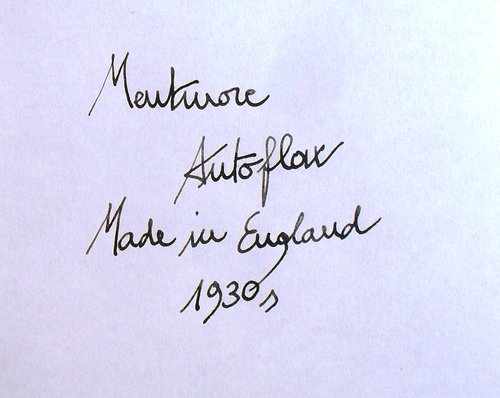 Mentmore
Autoflow
Made in England
1930s